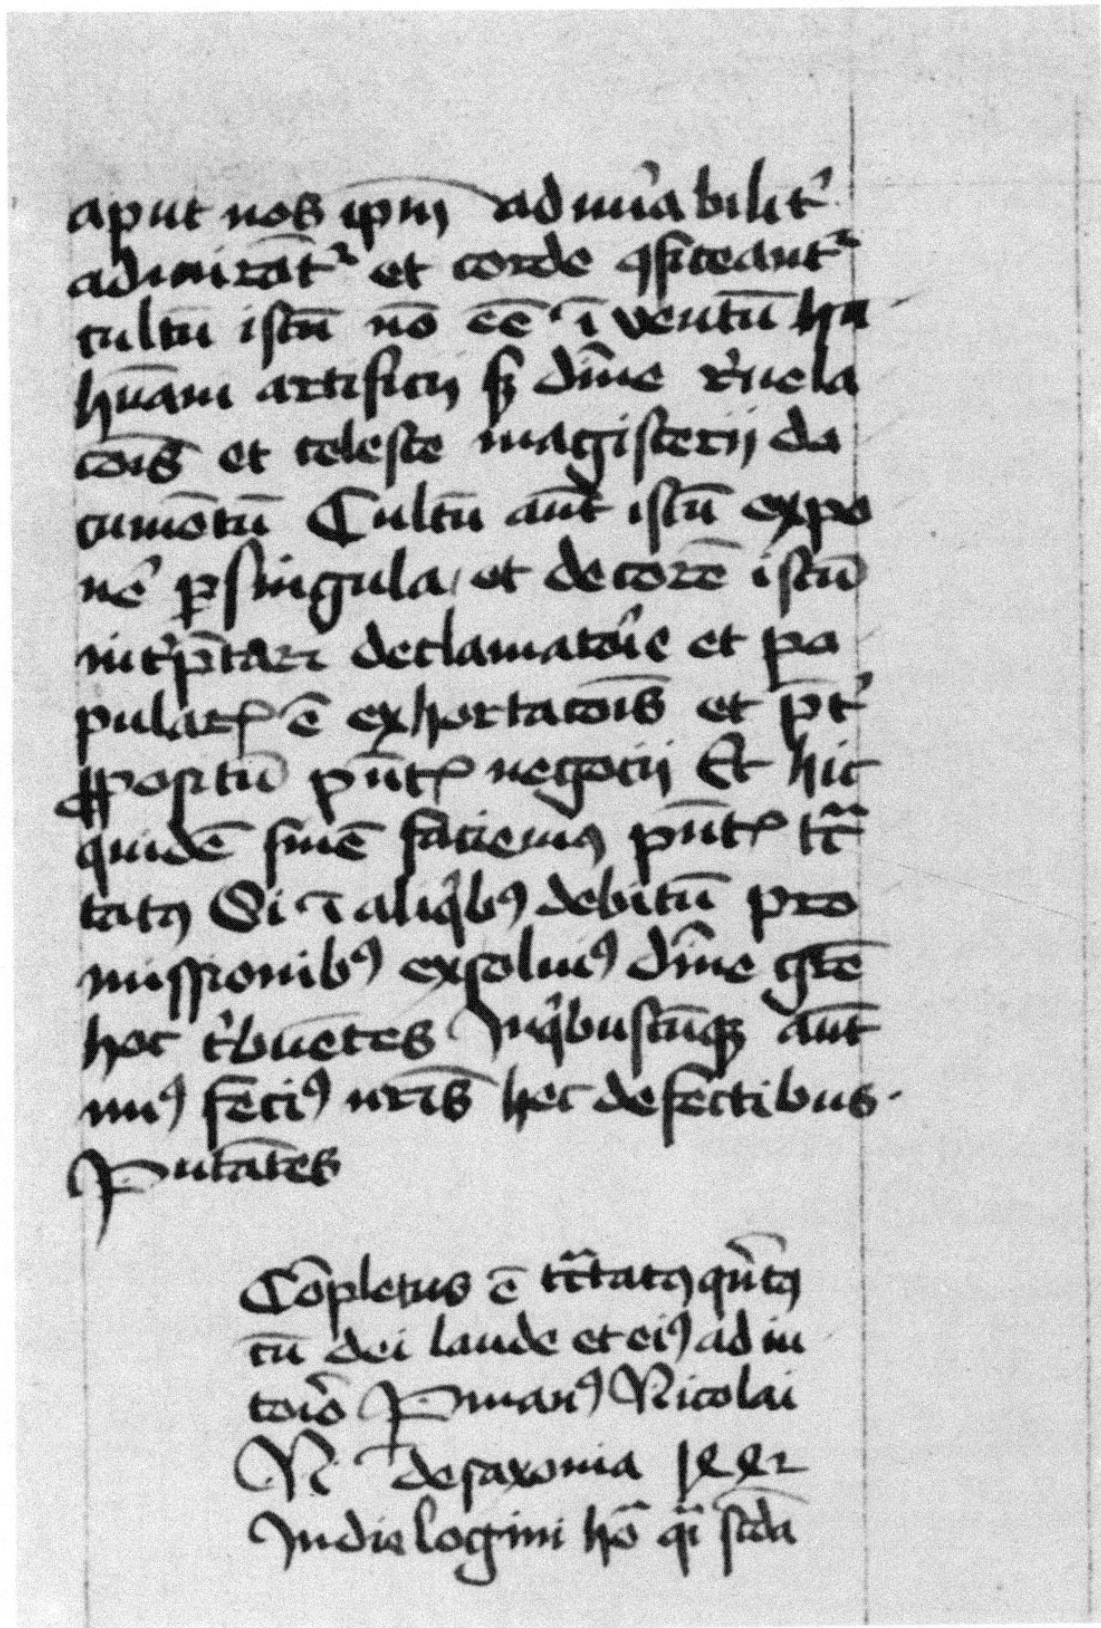 aput nos ip̄m admirabilit᷑
admirāt᷑ et corde ꝯfiteant᷑
cultū istū nō eē īventū hu
hūam artificij sꝫ diīne reuela
cōis et celeste magisterij do
cumētū Cultū aūt istū expo
ne᷑ ꝑ singula et decorē istū
int᷑p̄tari declamatōie et po
pulari ē exhortacōis et p̄t᷑
ꝓpositū p̄nt negocij Et hic
quidē finē faciemꝰ p̄nt t᷑c
tatꝰ Si ī aliqͥbꝰ debitū pro
missionibꝰ exsoluiꝰ diīne gr̄e
hoc t᷑buētes Inqͥbuscūqꝫ aūt
minꝰ feciꝰ nr̄is hec defectibus
Putātes
Cōpletus ē t᷑ctatꝰ qͥntꝰ
cū dei laude et eiꝰ adiu
toīo Pmanꝰ Nicolai
N de saxonia 1442
In die logini ho᷑ qͣi scd̄a